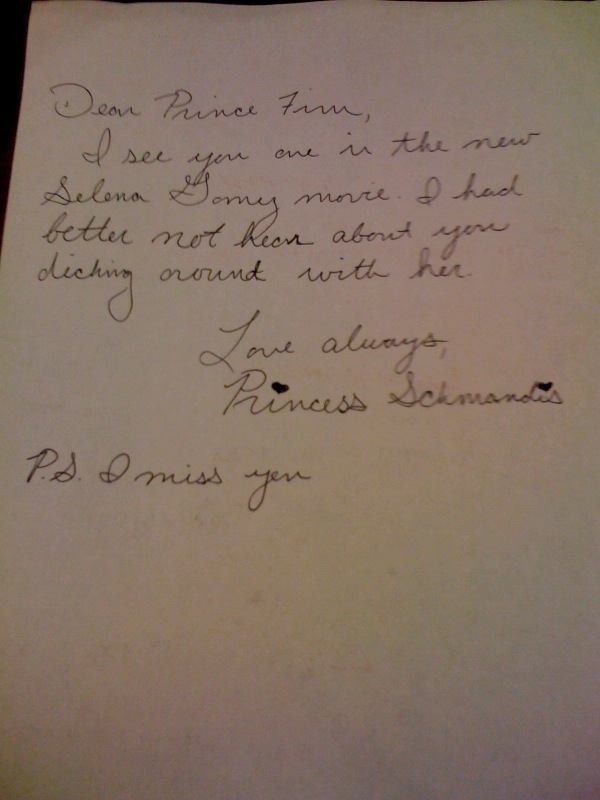 Dear Prince Finn,
I see you are in the new
Selena Gomez movie. I had
better not hear about you
dicking around with her.
Love always,
Princess Schmandis
P.S. I miss you